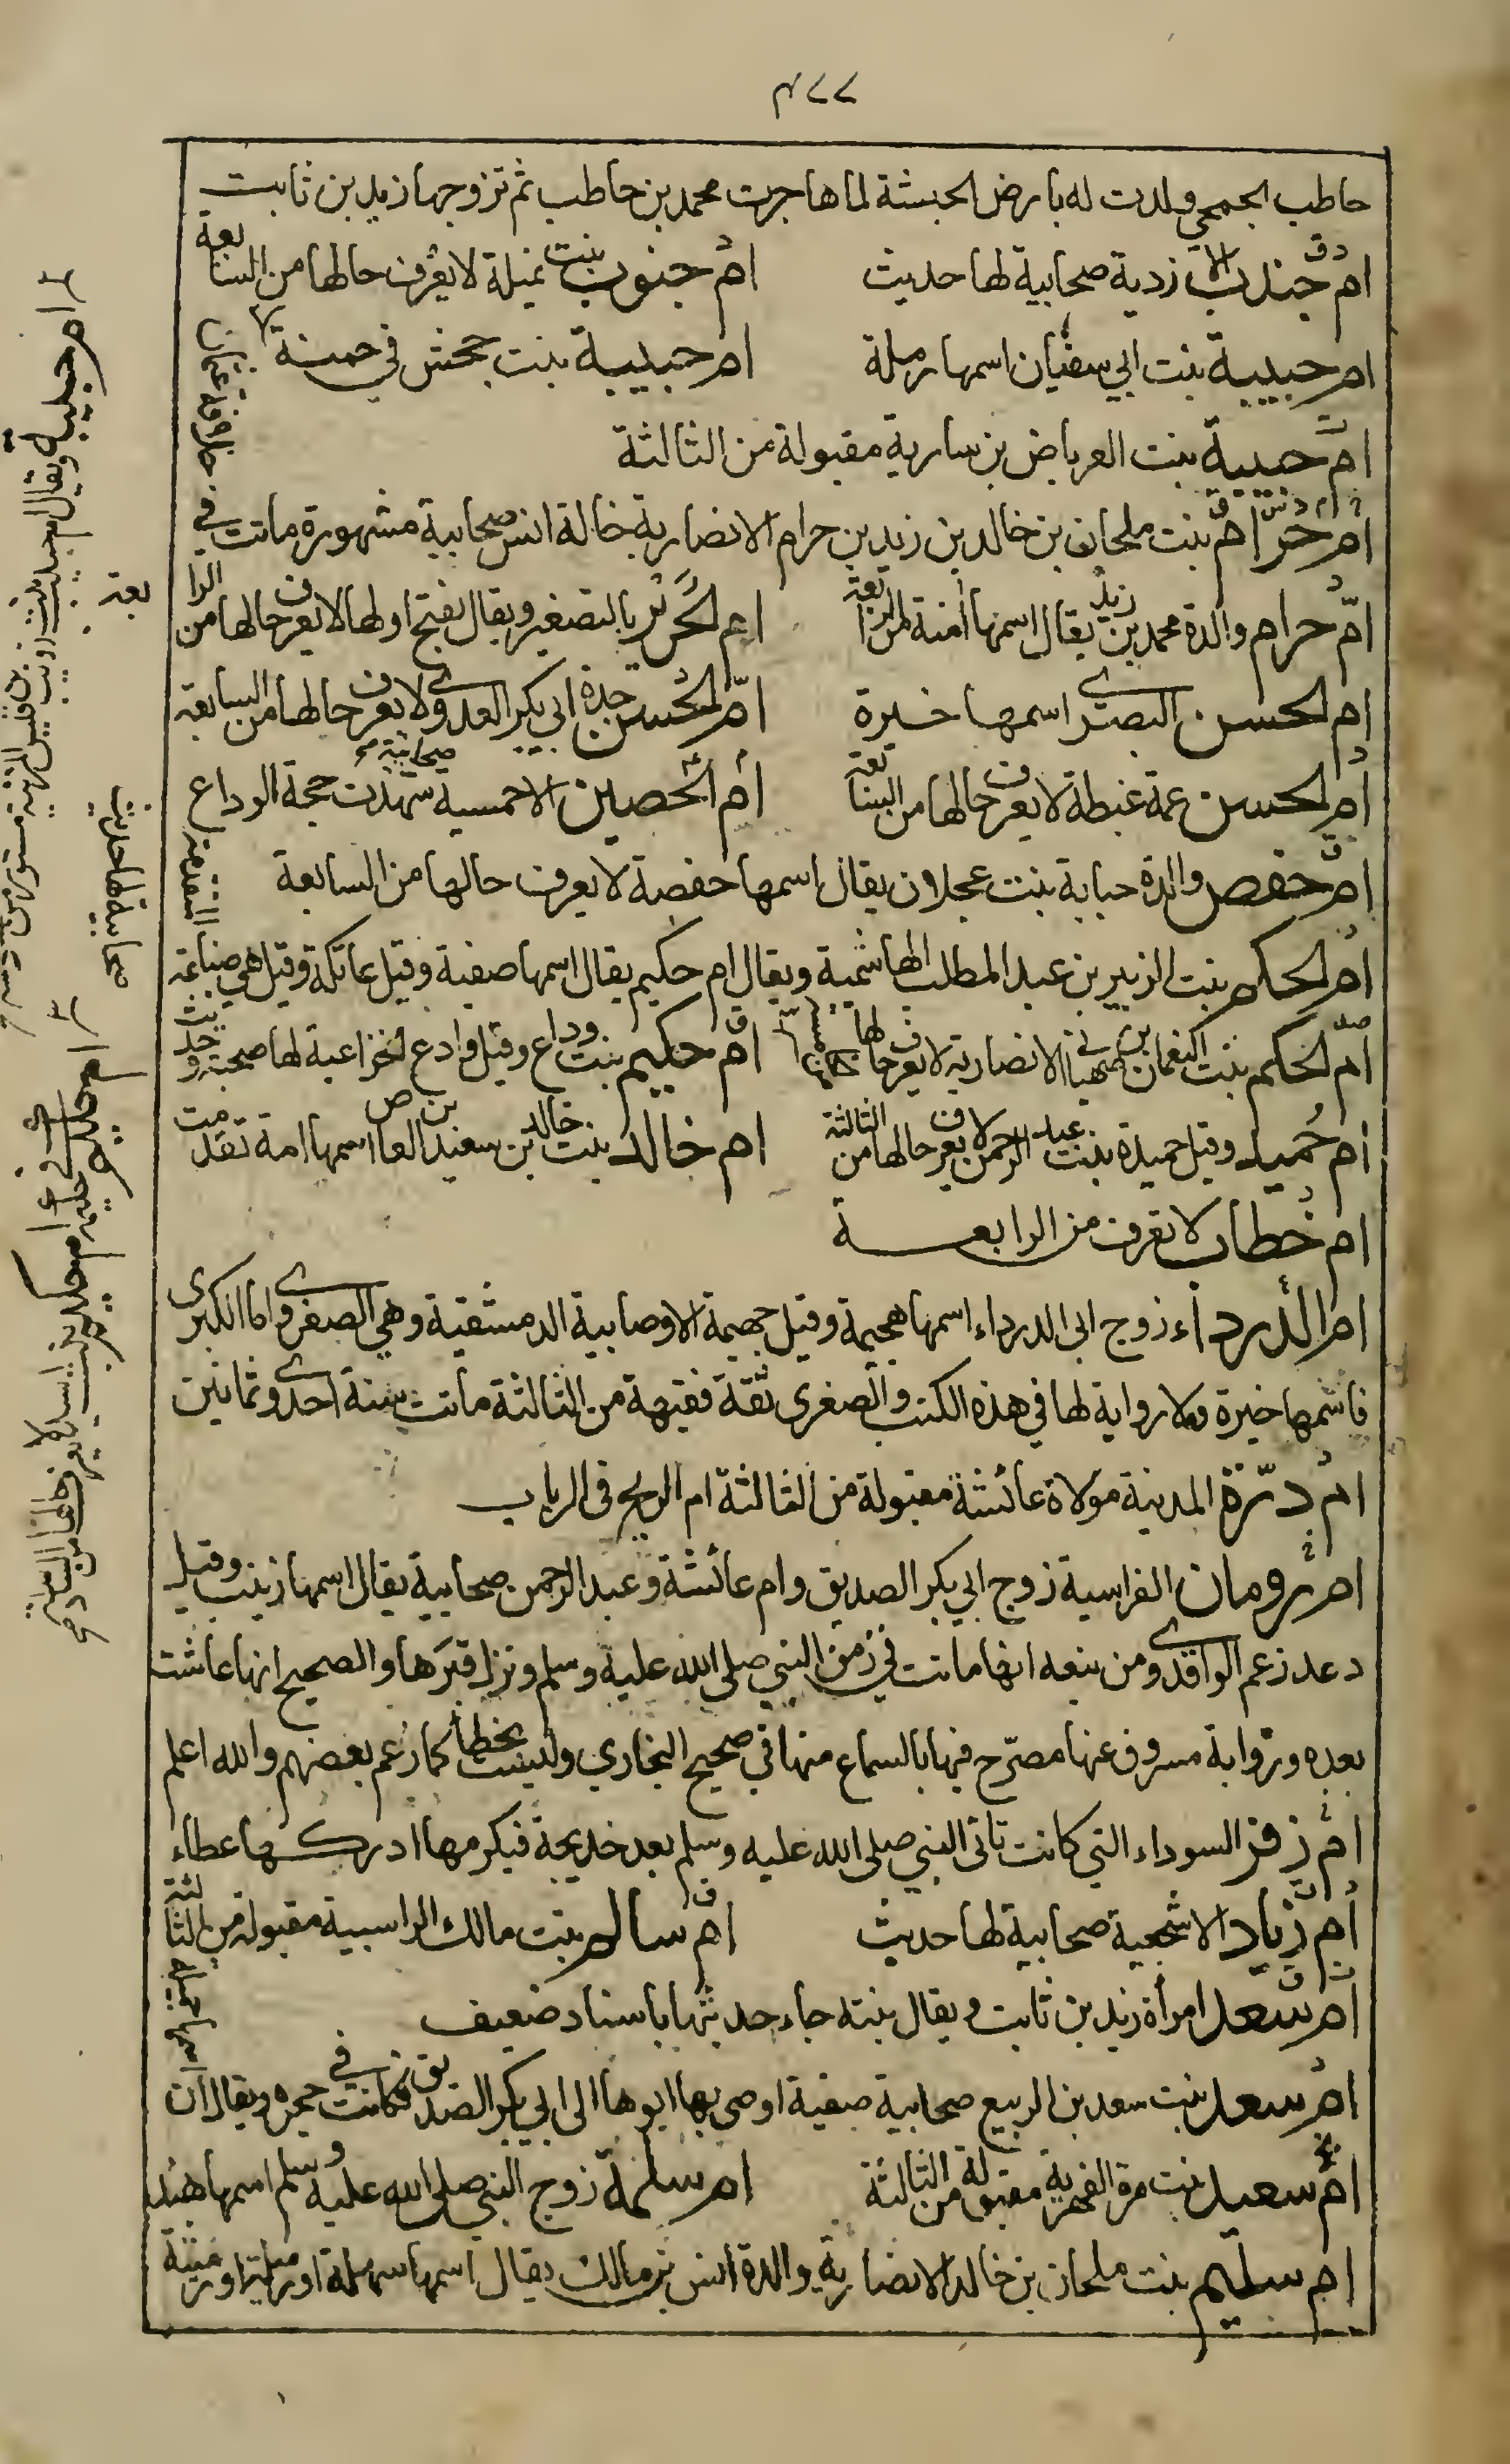 ٤٧٧
حاطب الجمحي ولدت له بارض الحبشة لما هاجرت محمد بن حاطب ثم تزوجها زيد بن ثابت
ام جندب الازدية صحابية لها حديث ام جنوب بنت نميلة لا يعرف حالها من السابعة
ام حبيبة بنت ابي سفيان اسمها رملة ام حبيبة بنت جحش في حمنة
ام حبيبة بنت العرباض بن سارية مقبولة من الثالثة
ام حرام بنت ملحان بن خالد بن زيد بن حرام الانصارية خالة انس صحابية مشهورة ماتت في خلافة عثمان
ام حرام والدة محمد بن زيد يقال اسمها امنة من الرابعة ام الحرير بالتصغير ويقال بفتح اولها لا يعرف حالها من الرابعة
ام الحسن البصري اسمها خيرة ام الحسن جدة ابي بكر العدوي لا يعرف حالها من السابعة
ام الحسن عمة غبطة لا يعرف حالها من السابعة ام الحصين الاحمسية صحابية شهدت حجة الوداع
ام حفص والدة حبابة بنت عجلان يقال اسمها حفصة لا يعرف حالها من السابعة
ام الحكم بنت الزبير بن عبد المطلب الهاشمية ويقال ام حكيم يقال اسمها صفية وقيل عاتكة وقيل هي ضباعة المتقدمة
ام الحكم بنت النعمان بن صهبان الانصارية لا يعرف حالها ام حكيم بنت وداع وقيل وادع الخزاعية لها صحبة وحديث
ام حميد وقيل حميدة بنت عبد الرحمن لا يعرف حالها من الثالثة ام خالد بنت خالد بن سعيد بن العاص اسمها امة تقدمت
ام خطاب لا تعرف من الرابعة
ام الدرداء زوج ابى الدرداء اسمها هجيمة وقيل جهيمة الاوصابية الدمشقية وهي الصغرى واما الكبرى
فاسمها خيرة ولا رواية لها في هذه الكتب والصغرى ثقة فقيهة من الثالثة ماتت سنة احدى وثمانين
ام درة المدنية مولاة عائشة مقبولة من الثالثة ام الرايح في الرباب
ام رومان الفراسية زوج ابي بكر الصديق وام عائشة وعبد الرحمن صحابية يقال اسمها زينب وقيل
دعد زعم الواقدي ومن تبعه انها ماتت في زمن النبي صلى الله عليه وسلم ونزل قبرها والصحيح انها عاشت
بعده ورواية مسروق عنها مصرح فيها بالسماع منها في صحيح البخاري وليست بخطأ كما زعم بعضهم والله اعلم
ام زفر السوداء التي كانت تاتى النبي صلى الله عليه وسلم بعد خديجة فيكرمها ادركها عطاء
ام زياد الاشجعية صحابية لها حديث ام سالم بنت مالك الراسبية مقبولة من الثالثة
ام سعد امرأة زيد بن ثابت ويقال بنته جاء حديثها باسناد ضعيف
ام سعد بنت سعد بن الربيع صحابية صغيرة اوصى بها ابوها الى ابي بكر الصديق فكانت في حجره ويقال ان اسمها جميلة
ام سعيد بنت مرة الفهرية مقبولة من الثالثة ام سلمة زوج النبي صلى الله عليه وسلم اسمها هند
ام سليم بنت ملحان بن خالد الانصارية والدة انس بن مالك يقال اسمها سهلة او رميلة او رميثة
ام حبيبة ويقال ام حبيب بنت ذؤيب بن قيس المزنية مستورة من
صحابية لها حديث
ام حكيم بنت اسيد لا يعرف حالها من السادسة